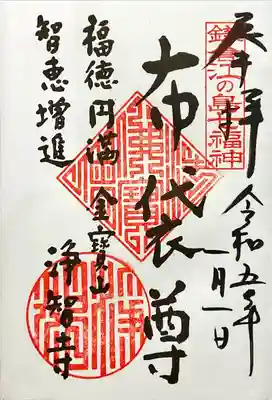 奉拝
鎌倉江の島七福神
令和五年一月一日
布袋尊
金寶山
浄智寺
福徳円満
智恵増進